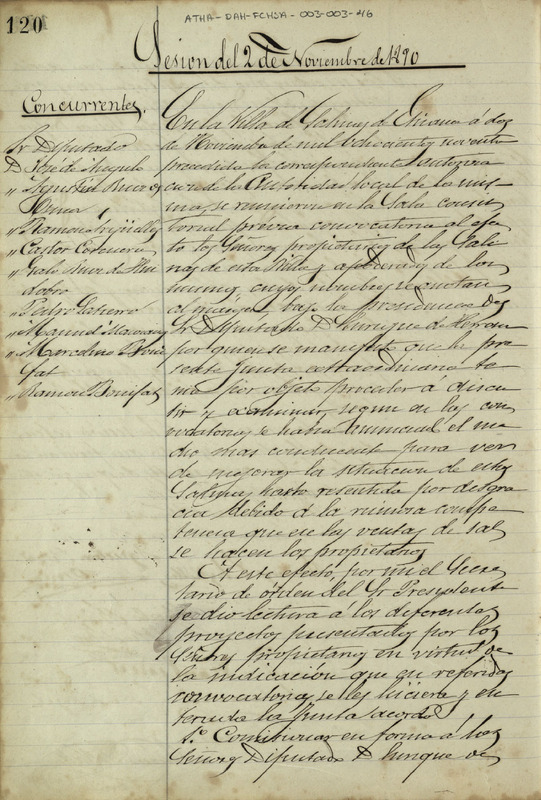 120
ATHA-DAH-FCHSA-003-003-46
Sesion del 2 de Noviembre de 1890
Concurrentes.
Sr Diputado
D José de Angulo
" Agustin
" Ramon
" Castor
" de Hui
dobro
" Pedro
" Manuel
" Marcelino Boni
faz
" Ramon Bonifaz
En la Villa de Salinas de Añana á dos
de Noviembre de mil ochocientos noventa
precedida la correspondiente autoriza
cion de la Autoridad local de la mis
ma, se reunieron en la Sala consis
torial previa convocatoria al efec
to los Señores propietarios de las Sali
nas de esta Villa y apoderados de los
mismos, cuyos nombres se anotan
al margen, bajo la presidencia del
Sr Diputado D Enrique de Herran
por quien se manifestó que la pre
sente junta extraordinaria te
nia por objeto proceder á discu
tir y examinar, segun en las con
vocatorias se habia anunciado el me
dio mas conducente para ver
de mejorar la situacion de estas
Salinas, harto resentida por desgra
cia debido á la ruinosa compe
tencia que en las ventas de sal
se hacen los propietarios
A este efecto, por mi el Secre
tario de orden del Sr Presidente
se dió lectura á los diferentes
proyectos presentados por los
Señores propietarios en virtud de
la indicación que en referidas
convocatorias se les hiciera y en
terada la Junta acordó
1.º Constituir en forma á los
Señores Diputado D Enrique de